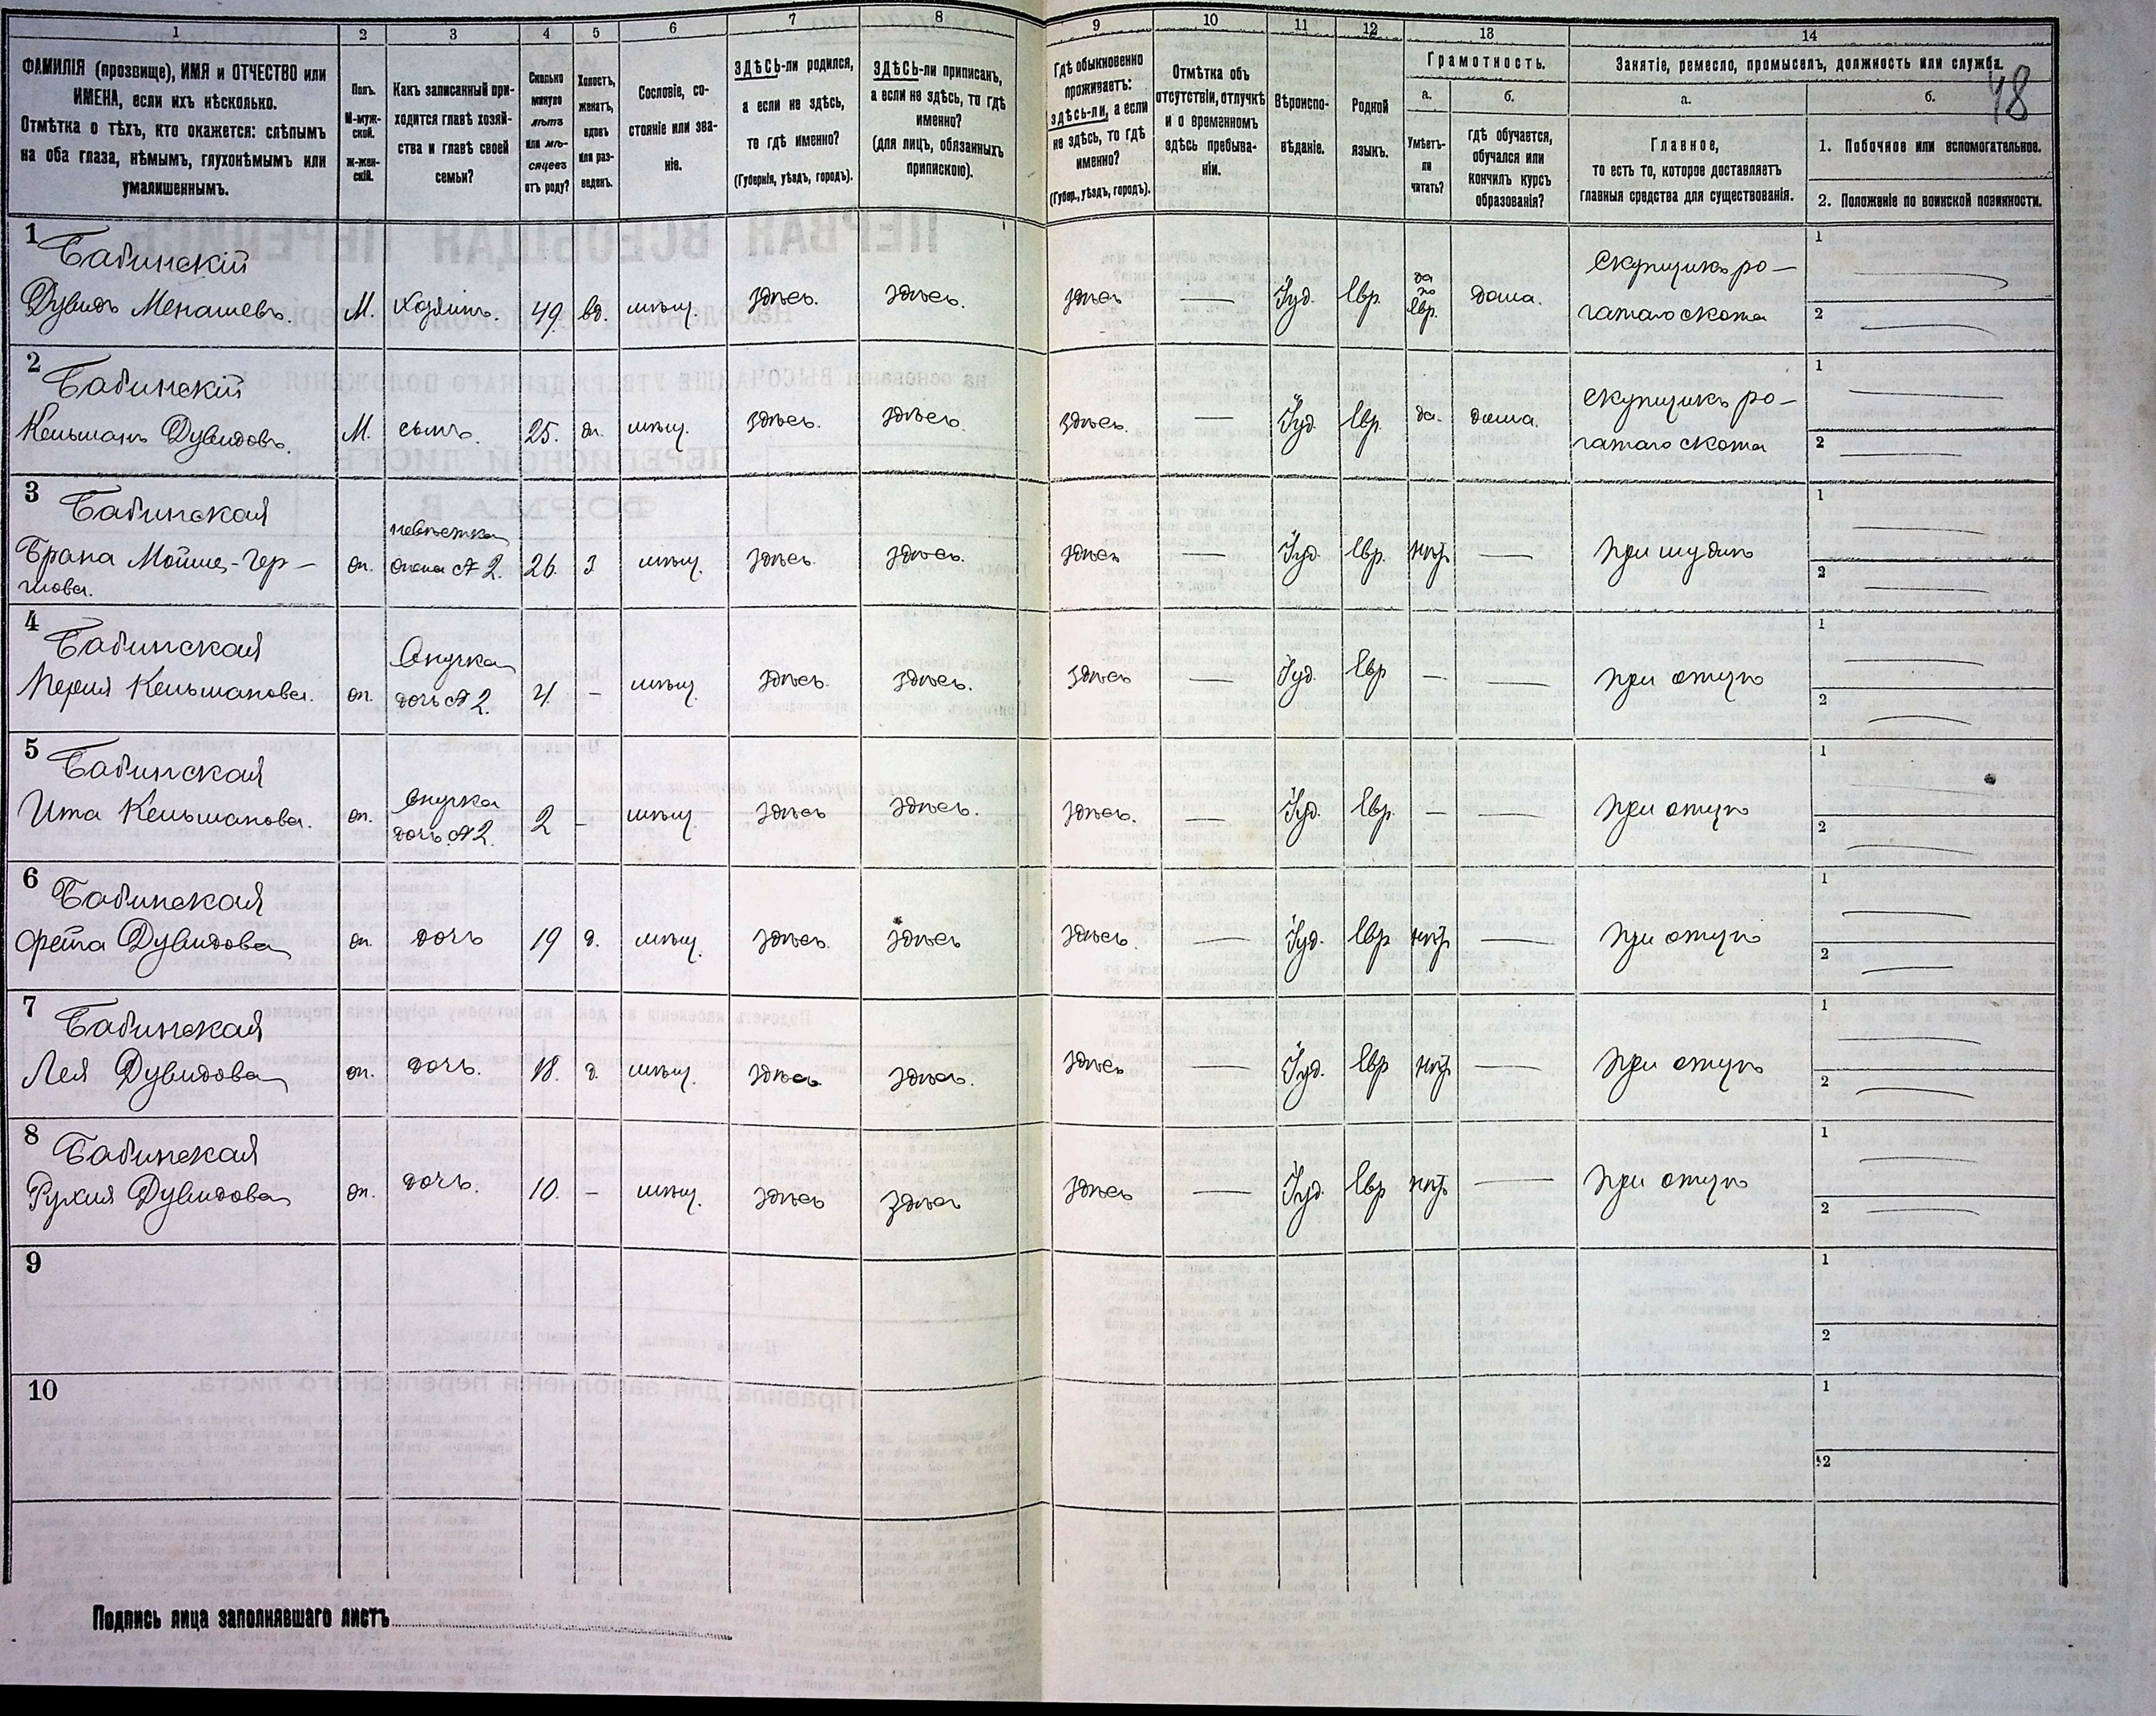 1 2 3 4 5 6 7 8 9 10 11 12 13 14
ФАМИЛІЯ (прозвище), ИМЯ и ОТЧЕСТВО или
ИМЕНА, если ихъ нѣсколько.
Отмѣтка о тѣхъ, кто окажется: слѣпымъ
на оба глаза, нѣмымъ, глухонѣмымъ или
умалишеннымъ.
Полъ.
М-муж-
ской.
ж-жен-
скій.
Какъ записанный при-
ходится главѣ хозяй-
ства и главѣ своей
семьи?
Сколько
минуло
лѣтъ
или мѣ-
сяцевъ
отъ роду?
Холостъ,
женатъ,
вдовъ
или раз-
веденъ.
Сословіе, со-
стояніе или зва-
ніе.
ЗДѢСЬ-ли родился,
а если не здѣсь,
то гдѣ именно?
(Губернія, уѣздъ, городъ).
ЗДѢСЬ-ли приписанъ,
а если не здѣсь, то гдѣ
именно?
(для лицъ, обязанныхъ
припискою).
Гдѣ обыкновенно
проживаетъ:
здѣсь-ли, а если
не здѣсь, то гдѣ
именно?
(Губер., уѣздъ, городъ).
Отмѣтка объ
отсутствіи, отлучкѣ
и о временномъ
здѣсь пребыва-
ніи.
Вѣроиспо-
вѣданіе.
Родной
языкъ.
Грамотность.
а.
Умѣетъ-
ли
читать?
б.
гдѣ обучается,
обучался или
кончилъ курсъ
образованія?
Занятіе, ремесло, промыселъ, должность или служба.
48
а.
Главное,
то есть то, которое доставляетъ
главныя средства для существованія.
б.
1. Побочное или вспомогательное.
2. Положеніе по воинской повинности.
1 Бабинскій
Дувидъ Менашевъ. М. хозяинъ. 49. вд. мѣщ. здѣсь. здѣсь. здѣсь — Іуд. Евр. да по Евр. дома. Скупщикъ ро-
гатаго скота
1 —
2 —
2 Бабинскій
Кельманъ Дувидовъ. М. сынъ. 25. ж. мѣщ. здѣсь. здѣсь. здѣсь. — Іуд. Евр. да. дома. скупщикъ ро-
гатаго скота
1 —
2 —
3 Бабинская
невѣстка
Брана Мойше-Гер- ж. жена № 2. 26. з мѣщ. здѣсь. здѣсь. здѣсь — Іуд. Евр. нѣтъ — при мужѣ
шова.
1 —
2 —
4 Бабинская
Внучка
Кельманова. ж. дочь № 2. 4. – мѣщ. здѣсь. здѣсь. здѣсь — Іуд. Евр – — при отцѣ
1 —
2 —
5 Бабинская
внучка
Ита Кельманова. ж. дочь № 2. 2 – мѣщ. здѣсь здѣсь. здѣсь. — Іуд. Евр. – — при отцѣ
1
2 —
6 Бабинская
Дувидова ж. дочь 19 д. мѣщ. здѣсь. здѣсь здѣсь. — Іуд. Евр нѣтъ — при отцѣ
1 —
2 —
7 Бабинская
Лея Дувидова ж. дочь. 18. д. мѣщ. здѣсь здѣсь. здѣсь — Іуд. Евр нѣтъ — при отцѣ
1 —
2 —
8 Бабинская
Рухля Дувидова ж. дочь. 10. – мѣщ. здѣсь здѣсь здѣсь — Іуд. Евр нѣтъ — при отцѣ
1 —
2 —
9
1
2
10
1
2
Подпись лица заполнявшаго листъ